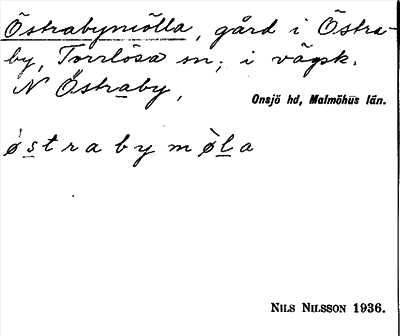 Östrabymölla, gård i Östra-
by, Torrlösa sn; i vägsk.
N Östraby,
Onsjö hd, Malmöhus län.
ǿstrabymø̀la
NILS NILSSON 1936.